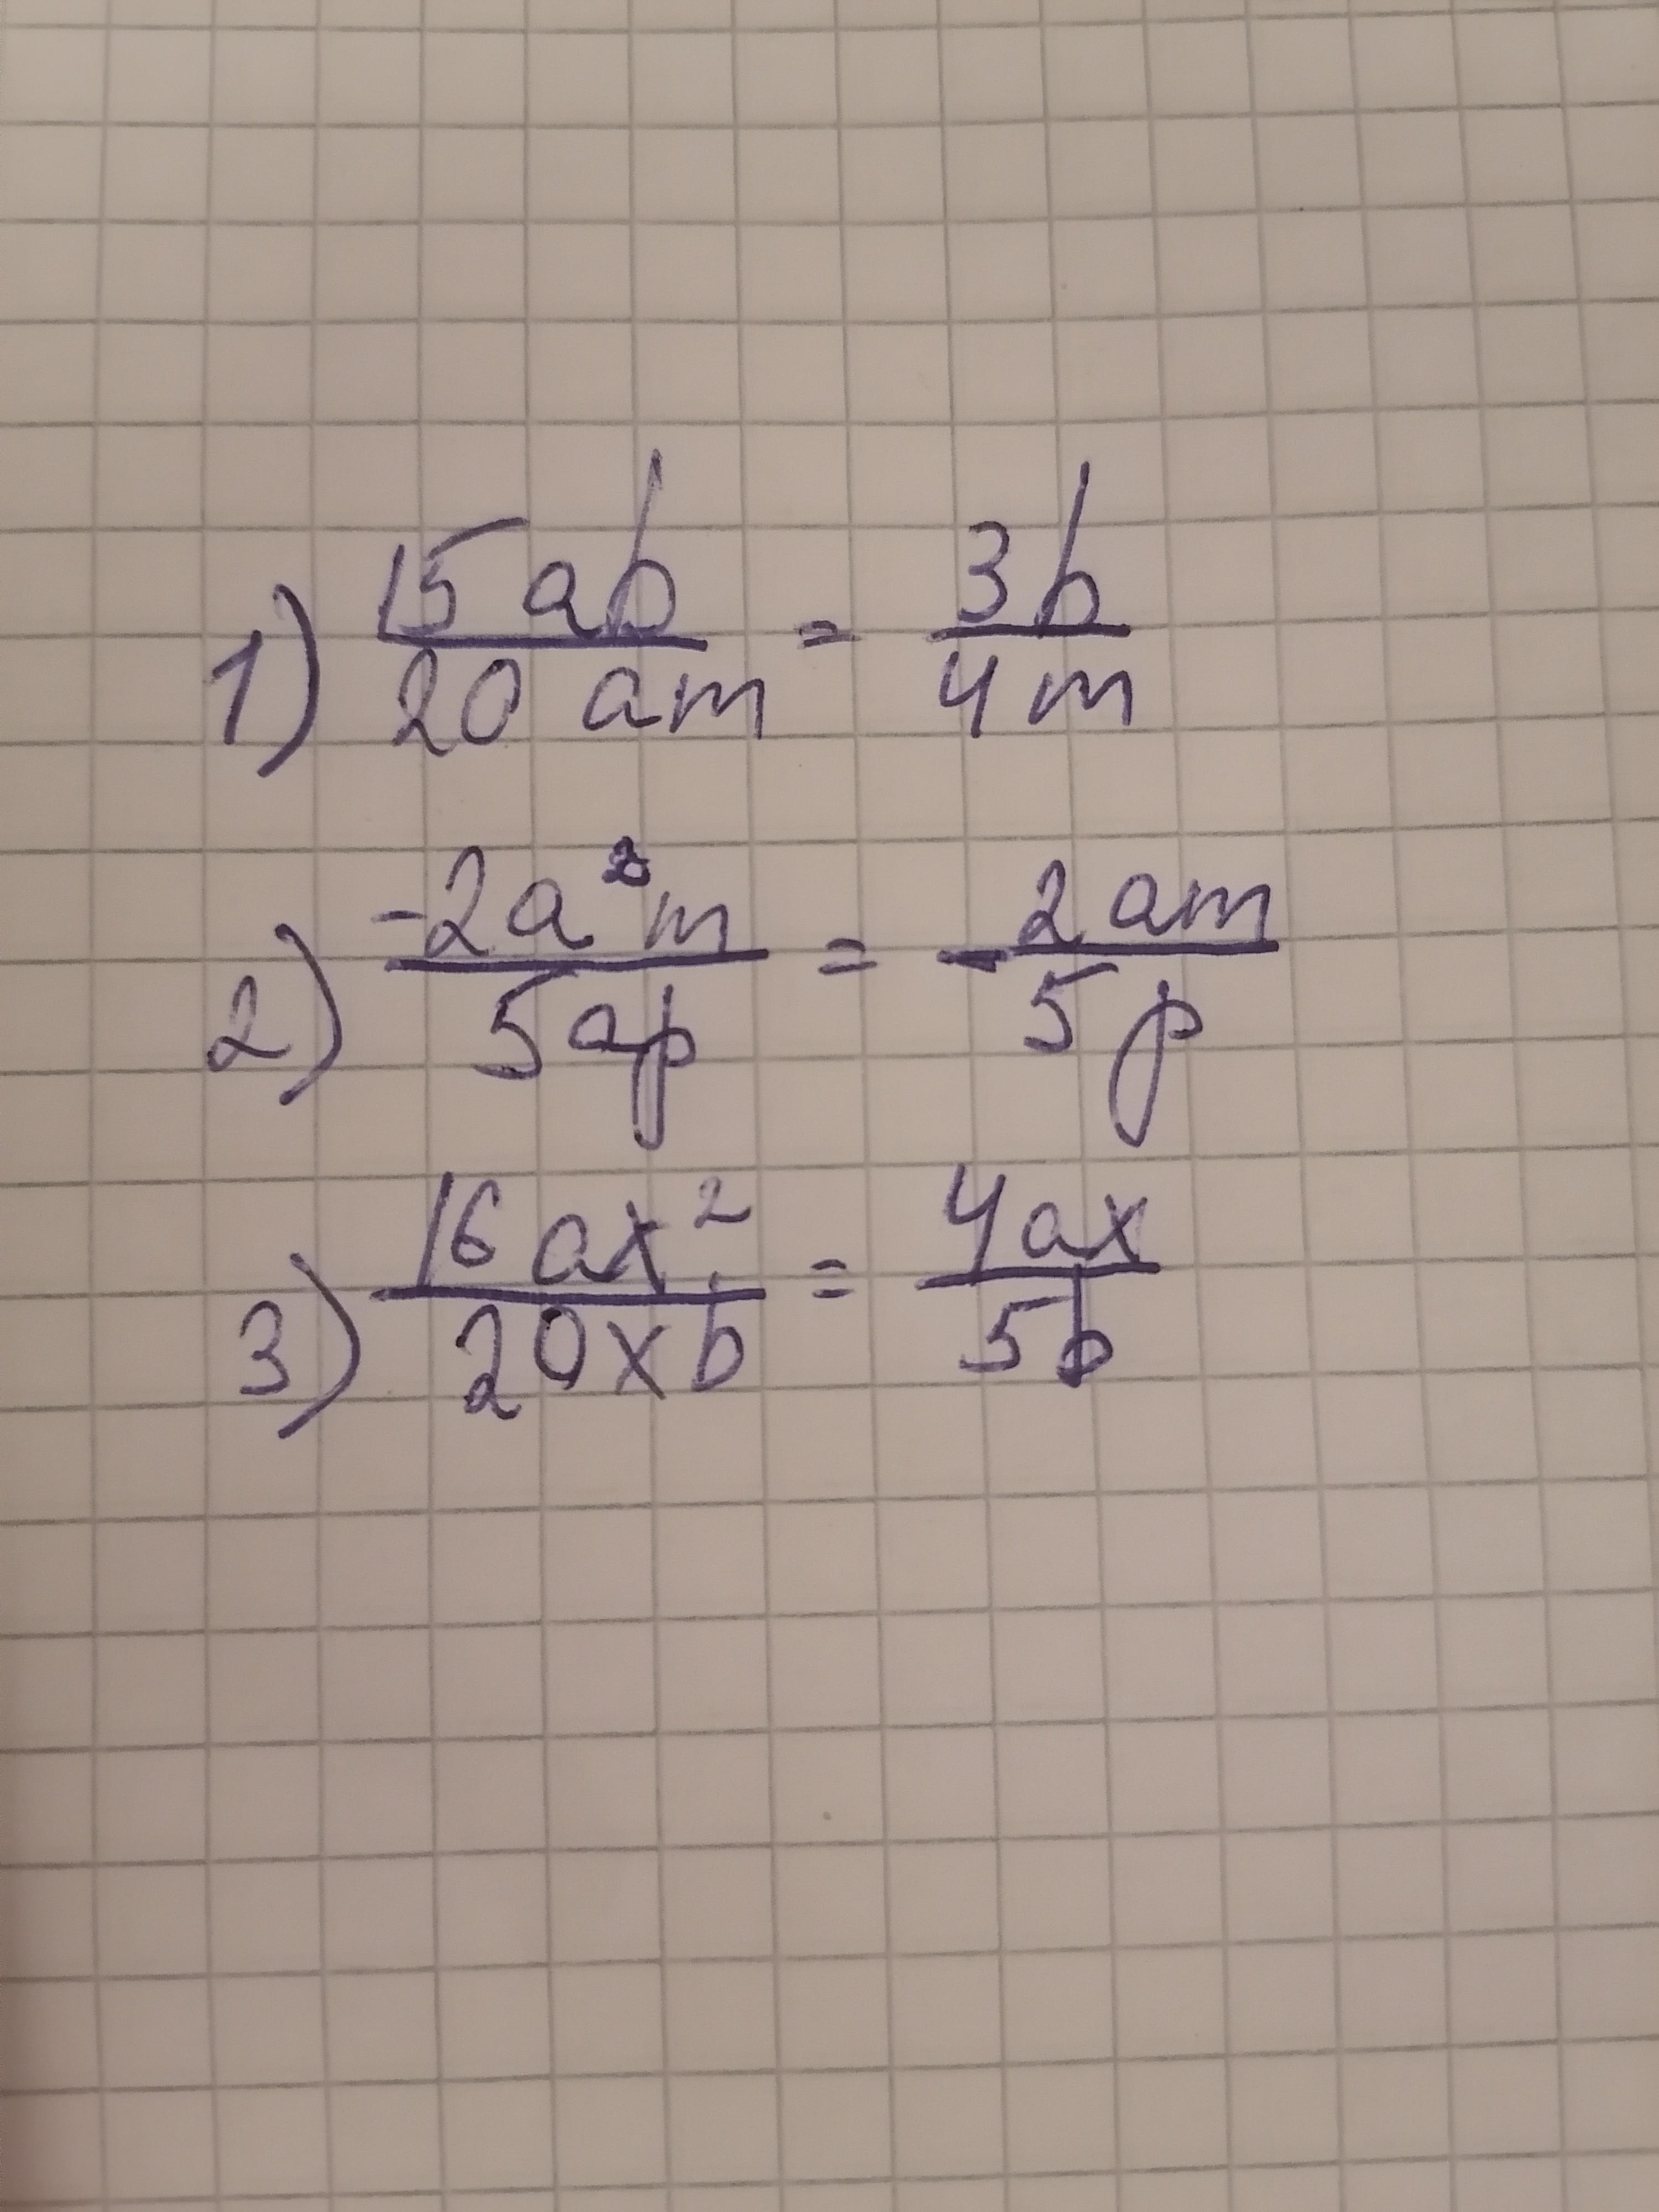 1) 15ab/20am = 3b/4m
2) -2a²m/5ap = -2am/5p
3) 16ax²/20xb = 4ax/5b